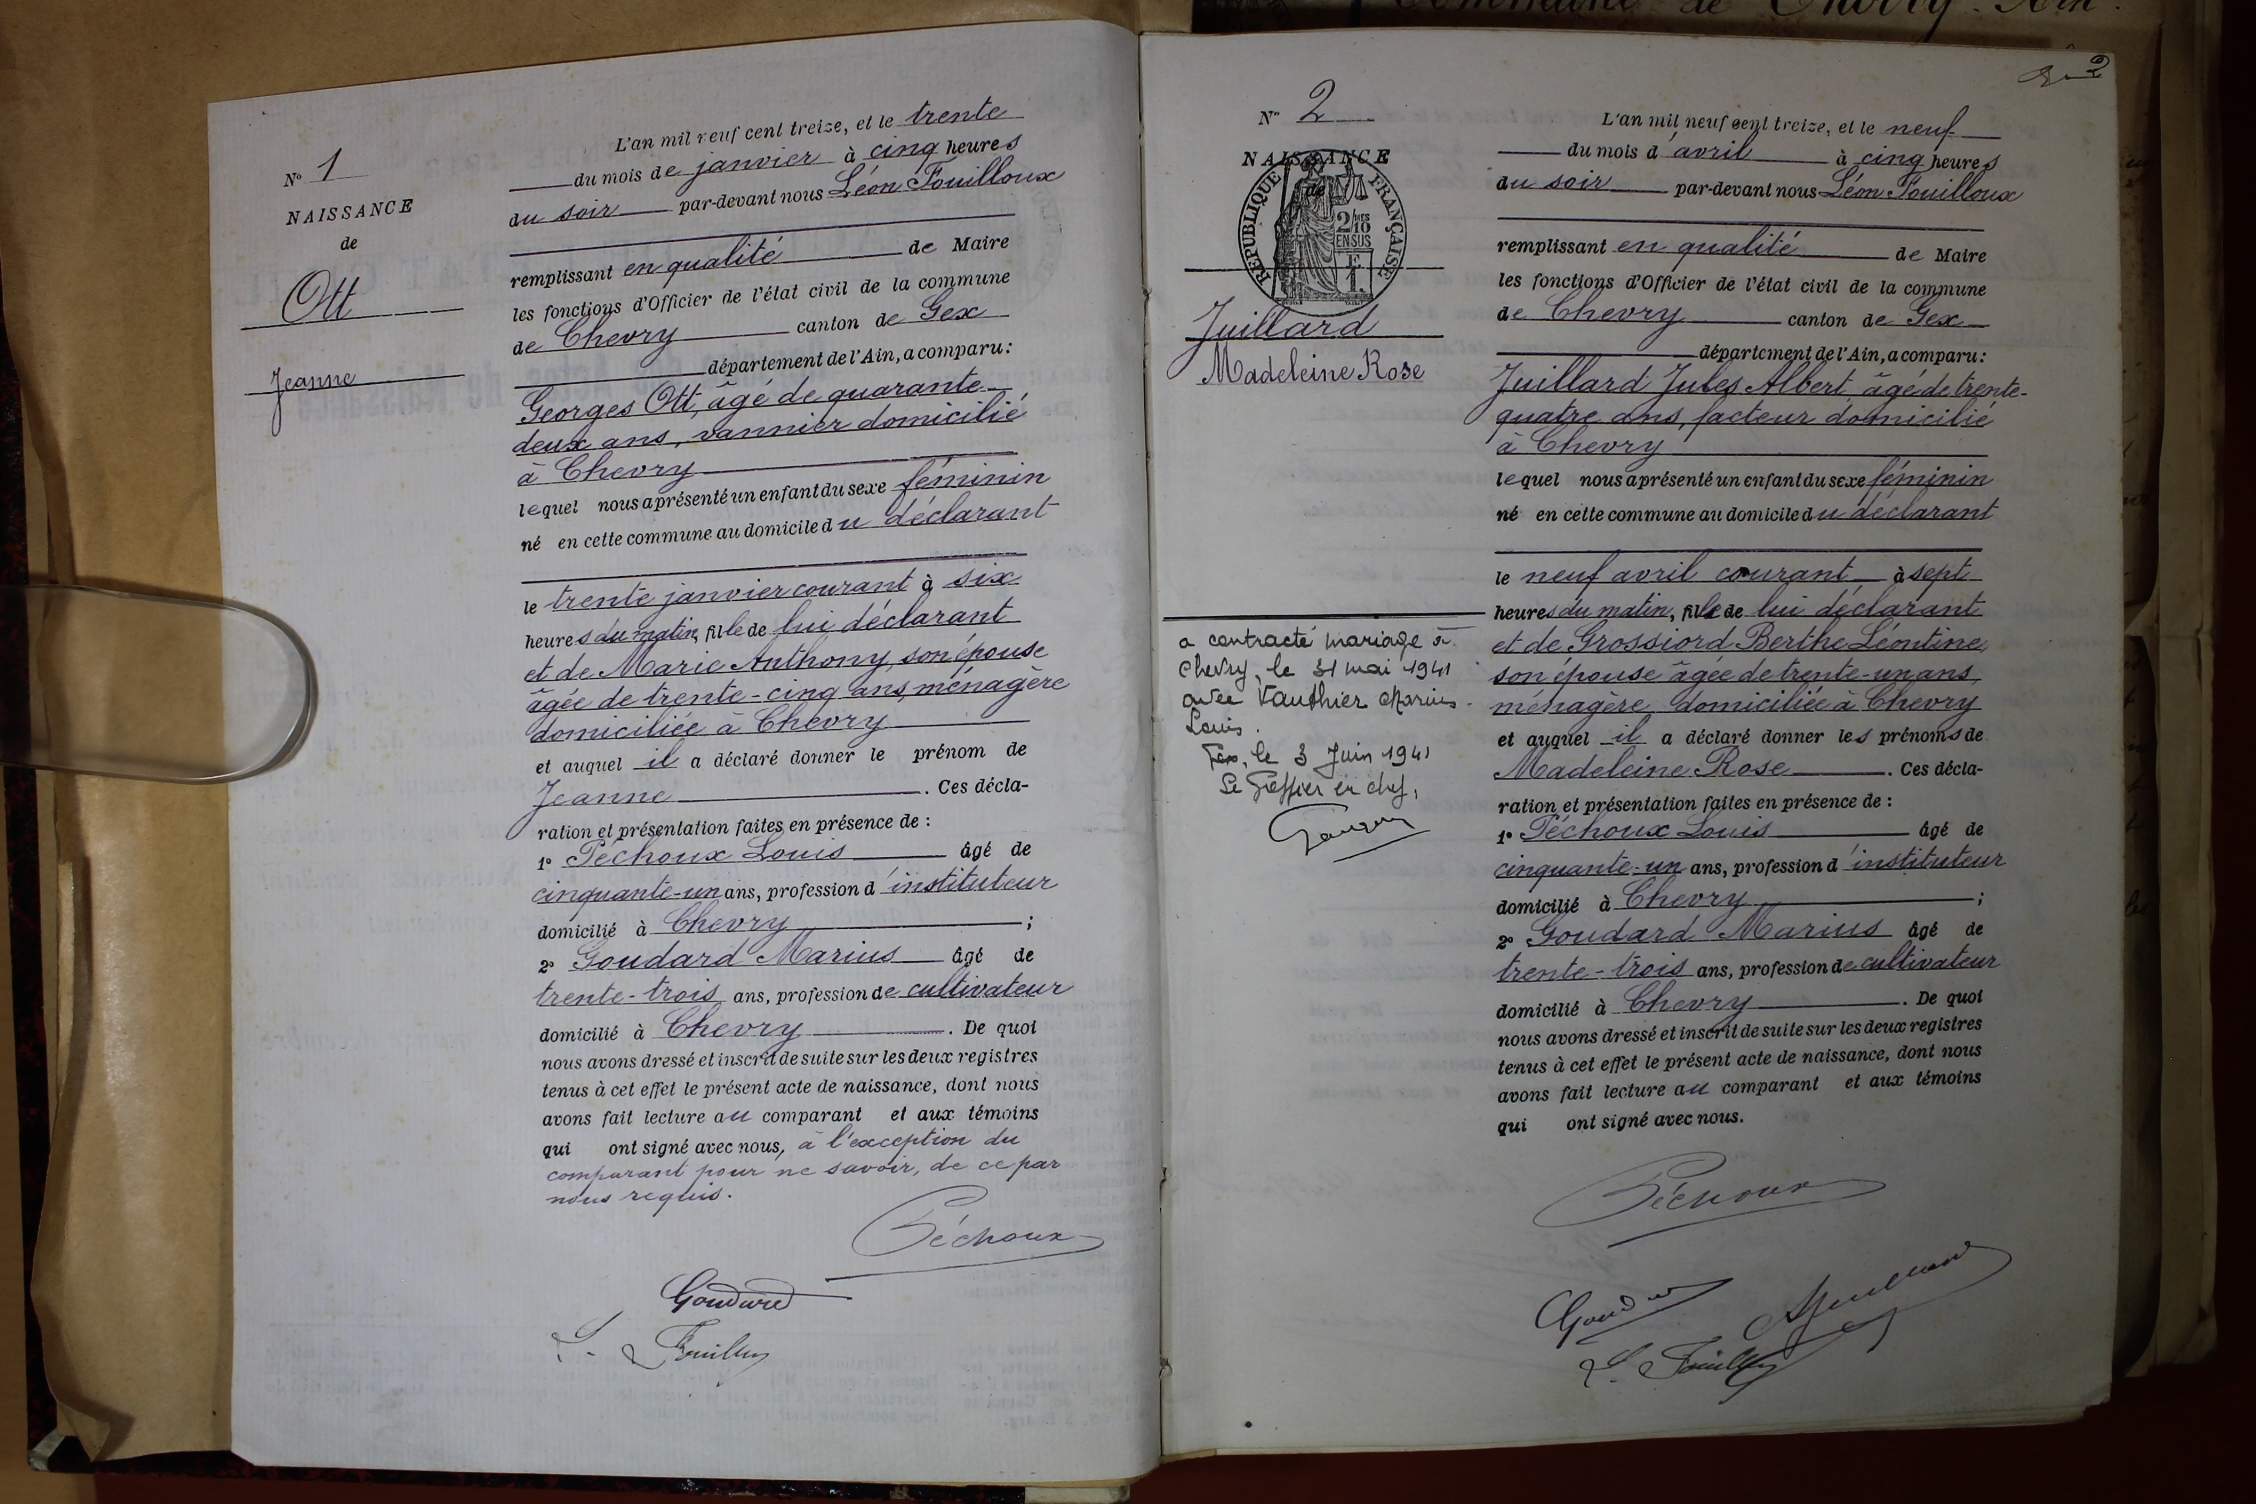 Commune de Chevry. Ain.
N° 1
NAISSANCE
de
Ott
Jeanne
L'an mil neuf cent treize, et le trente
du mois de janvier à cinq heures
du soir par-devant nous Léon Fouilloux
remplissant en qualité de Maire
les fonctions d'Officier de l'état civil de la commune
de Chevry canton de Gex
département de l'Ain, a comparu :
Georges Ott, âgé de quarante
deux ans, vannier domicilié
à Chevry
lequel nous a présenté un enfant du sexe féminin
né en cette commune au domicile du déclarant
le trente janvier courant à six
heures du matin, fille de lui déclarant
et de Marie Anthony, son épouse
âgée de trente-cinq ans, ménagère
domiciliée à Chevry
et auquel il a déclaré donner le prénom de
Jeanne . Ces décla-
ration et présentation faites en présence de :
1° Péchoux Louis âgé de
cinquante-un ans, profession d'instituteur
domicilié à Chevry ;
2° Goudard Marius âgé de
trente-trois ans, profession de cultivateur
domicilié à Chevry . De quoi
nous avons dressé et inscrit de suite sur les deux registres
tenus à cet effet le présent acte de naissance, dont nous
avons fait lecture au comparant et aux témoins
qui ont signé avec nous, à l'exception du
comparant pour ne savoir, de ce par
nous requis.
Péchoux
Goudard
L. Fouilloux
2
N° 2
NAISSANCE
de
RÉPUBLIQUE FRANÇAISE
2/10 MES
EN SUS
F
1.
Juillard
Madeleine Rose
a contracté mariage à
Chevry, le 31 mai 1941
avec Vauthier Marius
Louis.
Gex, le 3 Juin 1941
Le Greffier en chef,
L'an mil neuf cent treize, et le neuf
du mois d'avril à cinq heures
du soir par-devant nous Léon Fouilloux
remplissant en qualité de Maire
les fonctions d'Officier de l'état civil de la commune
de Chevry canton de Gex
département de l'Ain, a comparu :
Juillard Jules Albert âgé de trente-
quatre ans, facteur domicilié
à Chevry
lequel nous a présenté un enfant du sexe féminin
né en cette commune au domicile du déclarant
le neuf avril courant à sept
heures du matin, fille de lui déclarant
et de Grossiord Berthe Léontine,
son épouse âgée de trente-un ans,
ménagère domiciliée à Chevry
et auquel il a déclaré donner les prénoms de
Madeleine Rose . Ces décla-
ration et présentation faites en présence de :
1° Péchoux Louis âgé de
cinquante-un ans, profession d'instituteur
domicilié à Chevry ;
2° Goudard Marius âgé de
trente-trois ans, profession de cultivateur
domicilié à Chevry . De quoi
nous avons dressé et inscrit de suite sur les deux registres
tenus à cet effet le présent acte de naissance, dont nous
avons fait lecture au comparant et aux témoins
qui ont signé avec nous.
Péchoux
Goudard
L. Fouilloux